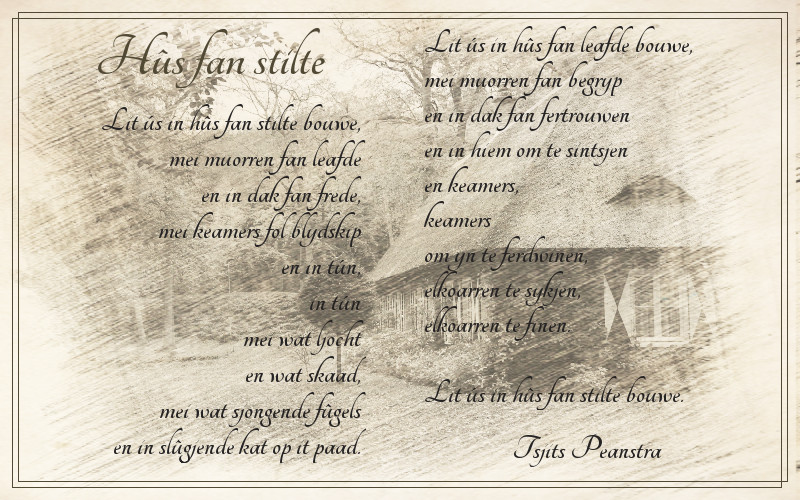 Hûs fan stilte
Lit ús in hûs fan stilte bouwe,
mei muorren fan leafde
en in dak fan frede,
mei keamers fol blydskip
en in tún,
in tún
mei wat ljocht
en wat skaad,
mei wat sjongende fûgels
en in slûgjende kat op it paad.
Lit ús in hûs fan leafde bouwe,
mei muorren fan begryp
en in dak fan fertrouwen
en in hiem om te sintsjen
en keamers,
keamers
om yn te ferdwinen,
elkoarren te sykjen,
elkoarren te finen.
Lit ús in hûs fan stilte bouwe.
Tsjits Peanstra